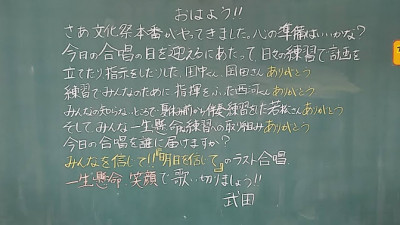 おはよう!!
さあ文化祭本番がやってきました。心の準備はいいかな?
今日の合唱の日を迎えるにあたって、日々の練習で計画を
立てたり指示をしたりした、田中くん、岡田さんありがとう
練習でみんなのために指揮をふった西河くんありがとう
みんなの知らないところで身体み前から伴奏練習をした若松さんありがとう
そして、みんな一生懸命な練習への取り組みありがとう
今日の合唱を誰に届けますか?
みんなを信じて!!『明日を信じて』のラスト合唱
一生懸命 笑顔で歌い切りましょう!!
武田